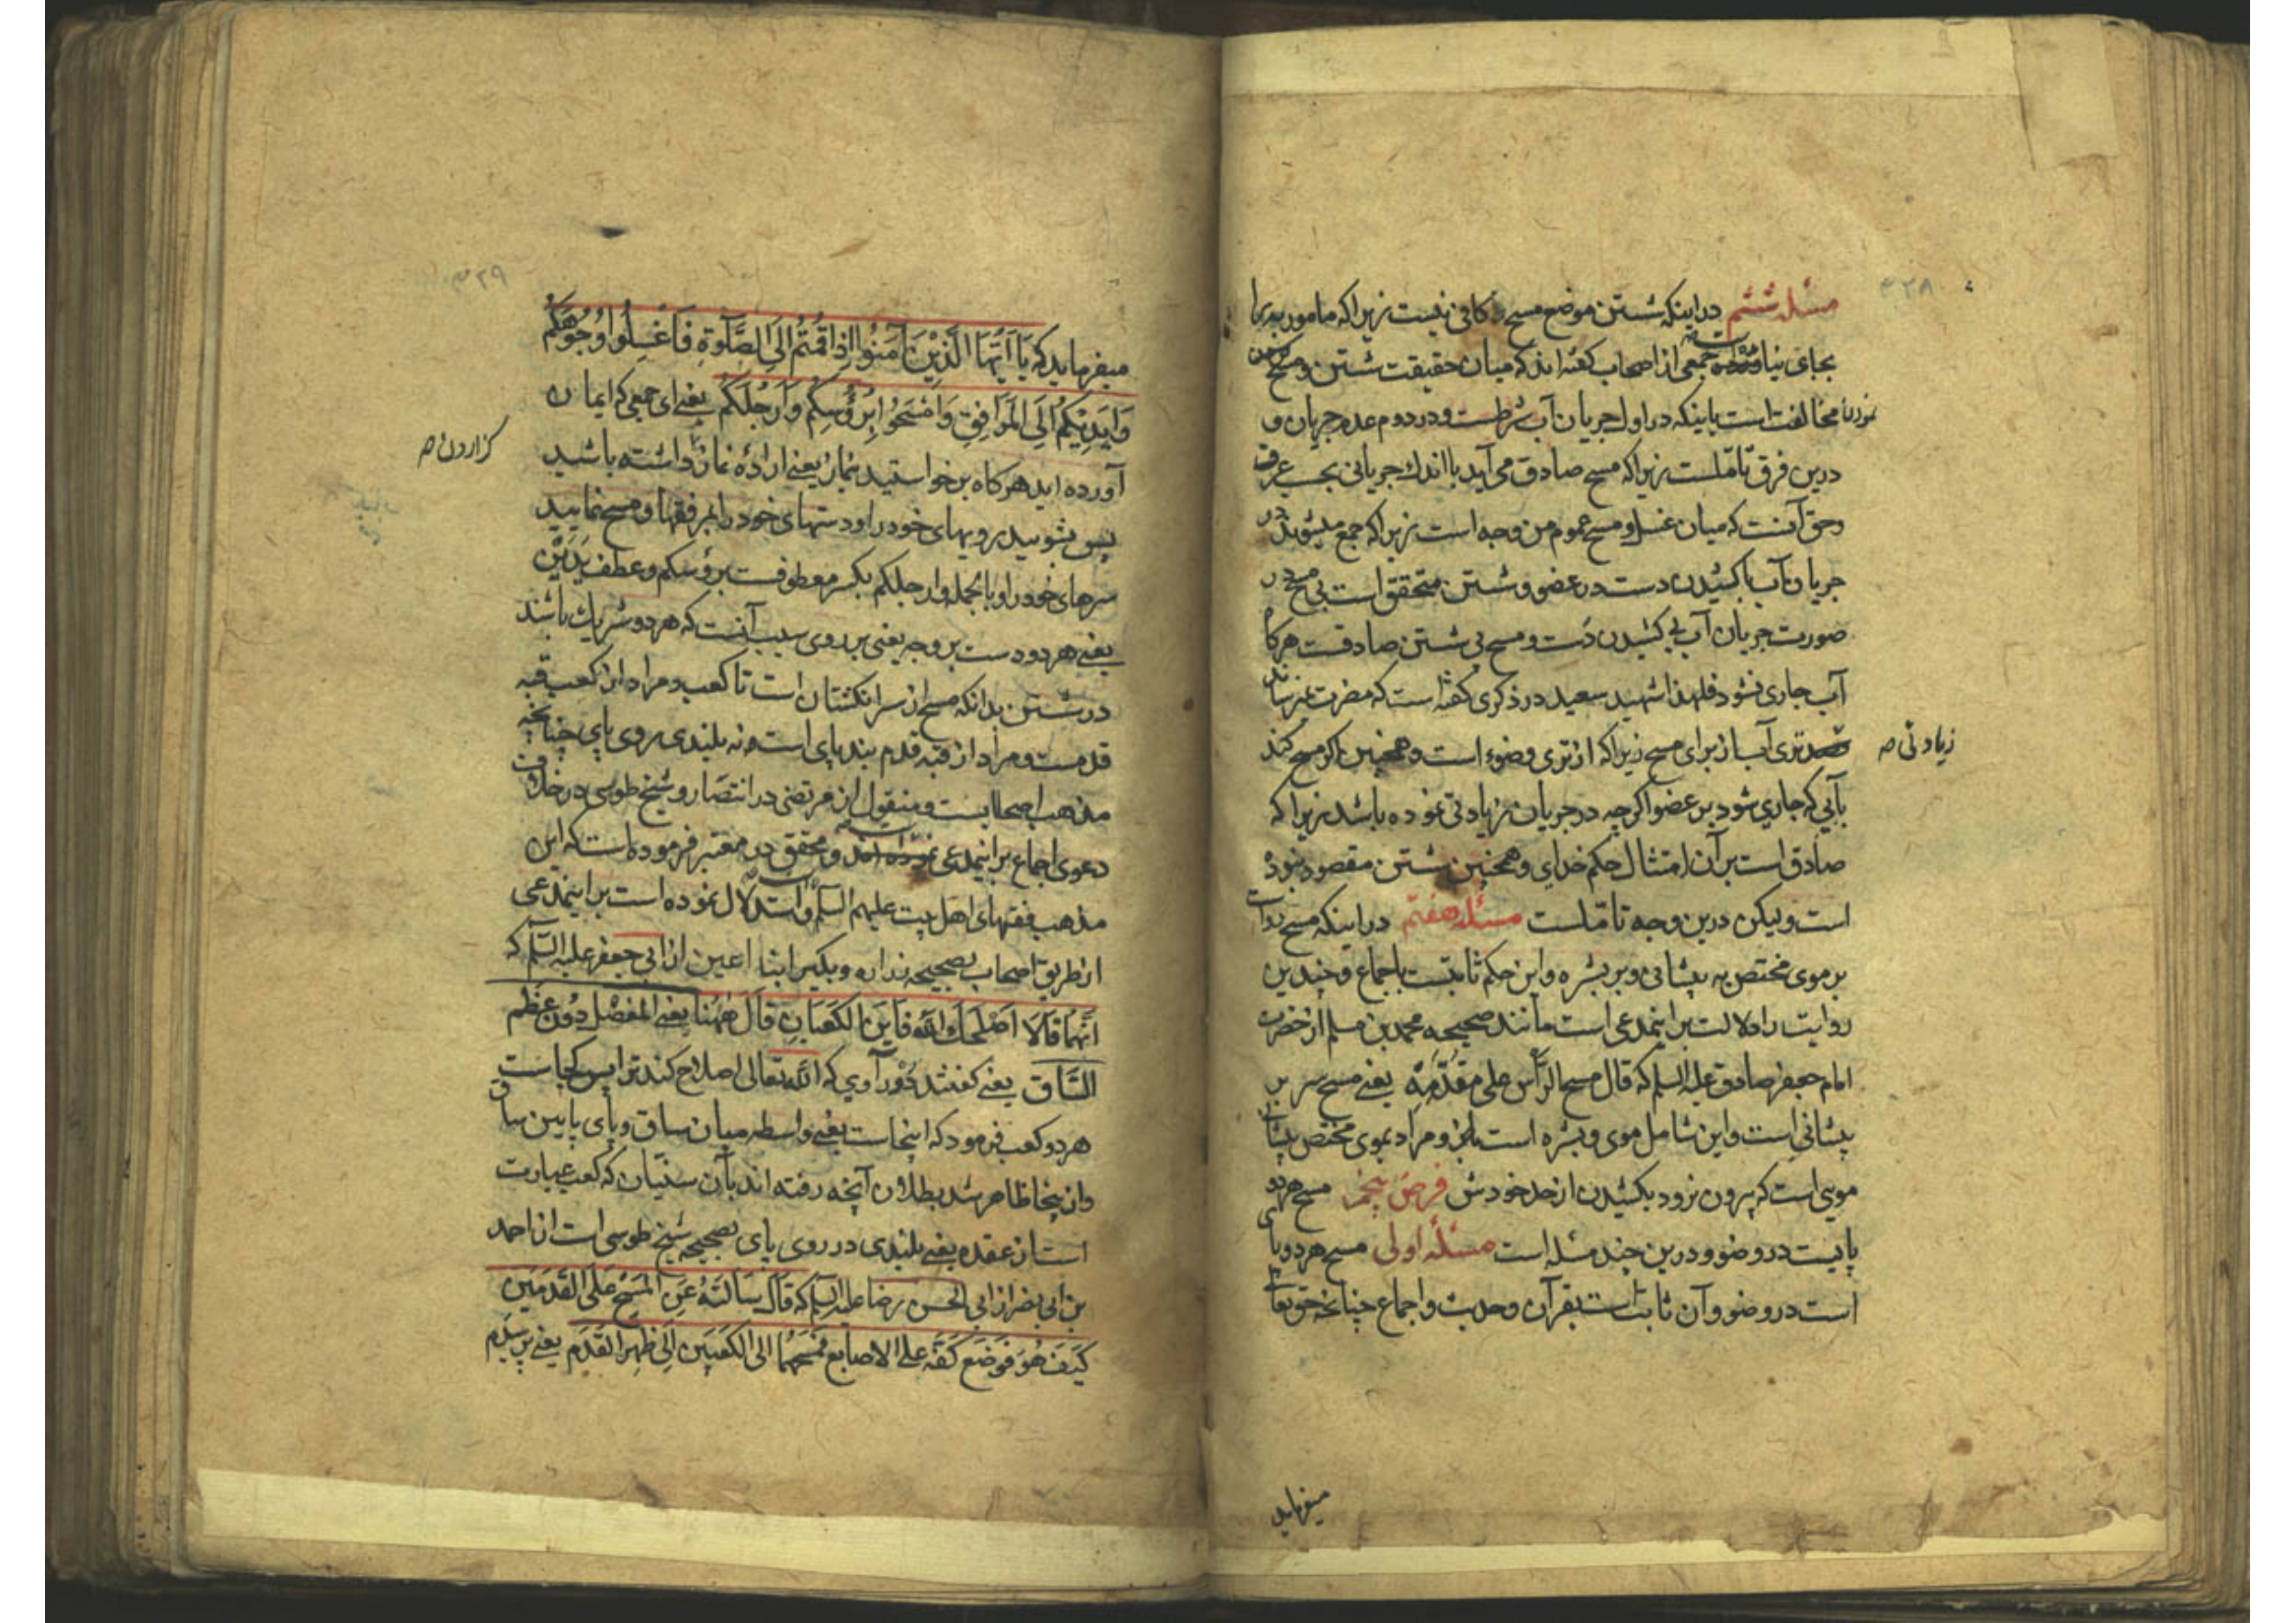 ۳۲۸
مسئله ششم در اینکه شستن موضع مسح کافی نیست زیرا که مامور به را
بجای نیاورده جمعی از اصحاب گفته اند که میان حقیقت شستن و مسح
نمودن مخالفت است باینکه در اول جریان آب شرطست و در دوم عدم جریان و
درین فرق تأملست زیرا که مسح صادق می آید با اندك جریانی بحسب عرف
و حق آنست که میان غسل و مسح عموم من وجه است زیرا که جمع میشوند در
جریان آب با کشیدن دست در عضو و شستن متحقق است بی مسح در
صورت جریان آب بی کشیدن دست و مسح بی شستن صادقست هرگاه
آب جاری نشود فلهذا شهید سعید در ذکری گفته است که مضرت نمیرساند
تری آب از برای مسح زیرا که از تری وضوء است و همچنین اگر مسح کند
زیادتی صه
بآبی که جاری شود بر عضو اگرچه در جریان زیادتی نموده باشد زیرا که
صادق است بر آن امتثال حکم خدای و همچنین شستن مقصود نبوده
است ولیکن درین وجه تاملست مسئله هفتم در اینکه مسح روا است
بر موی مختص به پیشانی و بر بشره و این حکم ثابتست باجماع و چندین
روایت را دلالت بر اینمدعی است مانند صحیحه محمد بن مسلم از حضرت
امام جعفر صادق علیه السلم که قال مسح الرأس علی مقدّمه یعنی مسح سر بر
پیشانی است و این شامل موی و بشره است و مراد بموی مختص پیشانی
مویی است که بیرون نرود بکشیدن از حد خودش فرض پنجم مسح هر دو
پایست در وضو و درین چند مسئله است مسئله اولی مسح هر دو پای
است در وضو و آن ثابت است بقرآن و حدیث و اجماع چنانچه حق تعالی
میفرماید
۳۲۹
میفرماید که یَا اَیُّهَا الَّذِیْنَ آمَنُوا اِذَا قُمْتُمْ اِلَی الصَّلٰوةِ فَاغْسِلُوا وُجُوهَکُمْ
وَاَیْدِیَکُمْ اِلَی الْمَرَافِقِ وَامْسَحُوا بِرُؤُسِکُمْ وَاَرْجُلِکُمْ یعنی ای جمعی که ایمان
آورده اید هرگاه برخواستید بنماز یعنی ارادهٔ نماز داشته باشید
گزاردن صه
پس بشویید رویهای خود را و دستهای خود را بمرفقها و مسح نمایید
سرهای خود را و بالجمله وارجلکم بکسر معطوفست برؤسکم و عطف یَدَیْن
یعنی هر دو دست بر وجه یعنی بر روی سبب آنست که هر دو شریك باشند
در شستن بدانکه مسح از سر انگشتان است تا کعب و مراد از کعب قبه
قدمست و مراد از قبه قدم بند پای است نه بلندی روی پای چنانچه
مذهب اصحابست و منقول از مرتضی در انتصار و شیخ طوسی در خلاف
دعوی اجماع بر اینمدعی و محقق در معتبر فرموده است که این
مذهب فقهای اهل بیت علیهم السلم و استدلال نموده است بر اینمدعی
از طریق اصحاب بصحیحه زراره و بکیر ابنا اعین از ابی جعفر علیه السلم که
اَنَّهُمَا قَالَا اَصْلَحَكَ اللهُ فَاَیْنَ الْکَعْبَانِ قَالَ هٰهُنَا یعنی المَفْصَل دُونَ عَظْم
السَّاق یعنی گفتند که الله تعالی اصلاح کند ترا پس کجاست
هر دو کعب فرمود که اینجاست یعنی واسطه میان ساق و پای پایین ساق
و از اینجا ظاهر شد بطلان آنچه رفته اند بآن سنیان که کعب عبارت
است از عقده یعنی بلندی در روی پای بصحیحه شیخ طوسی است از احمد
بن ابی نصر از ابی الحسن رضا علیه السلم که قَالَ سَاَلْتُهُ عَنِ الْمَسْحِ عَلَی الْقَدَمَیْنِ
کَیْفَ هُوَ فَوَضَعَ کَفَّهُ عَلَی الاصابع فَمَسَحَهُمَا اِلَی الْکَعْبَیْنِ اِلَی ظَهْرِ الْقَدَمِ یعنی پرسیدم